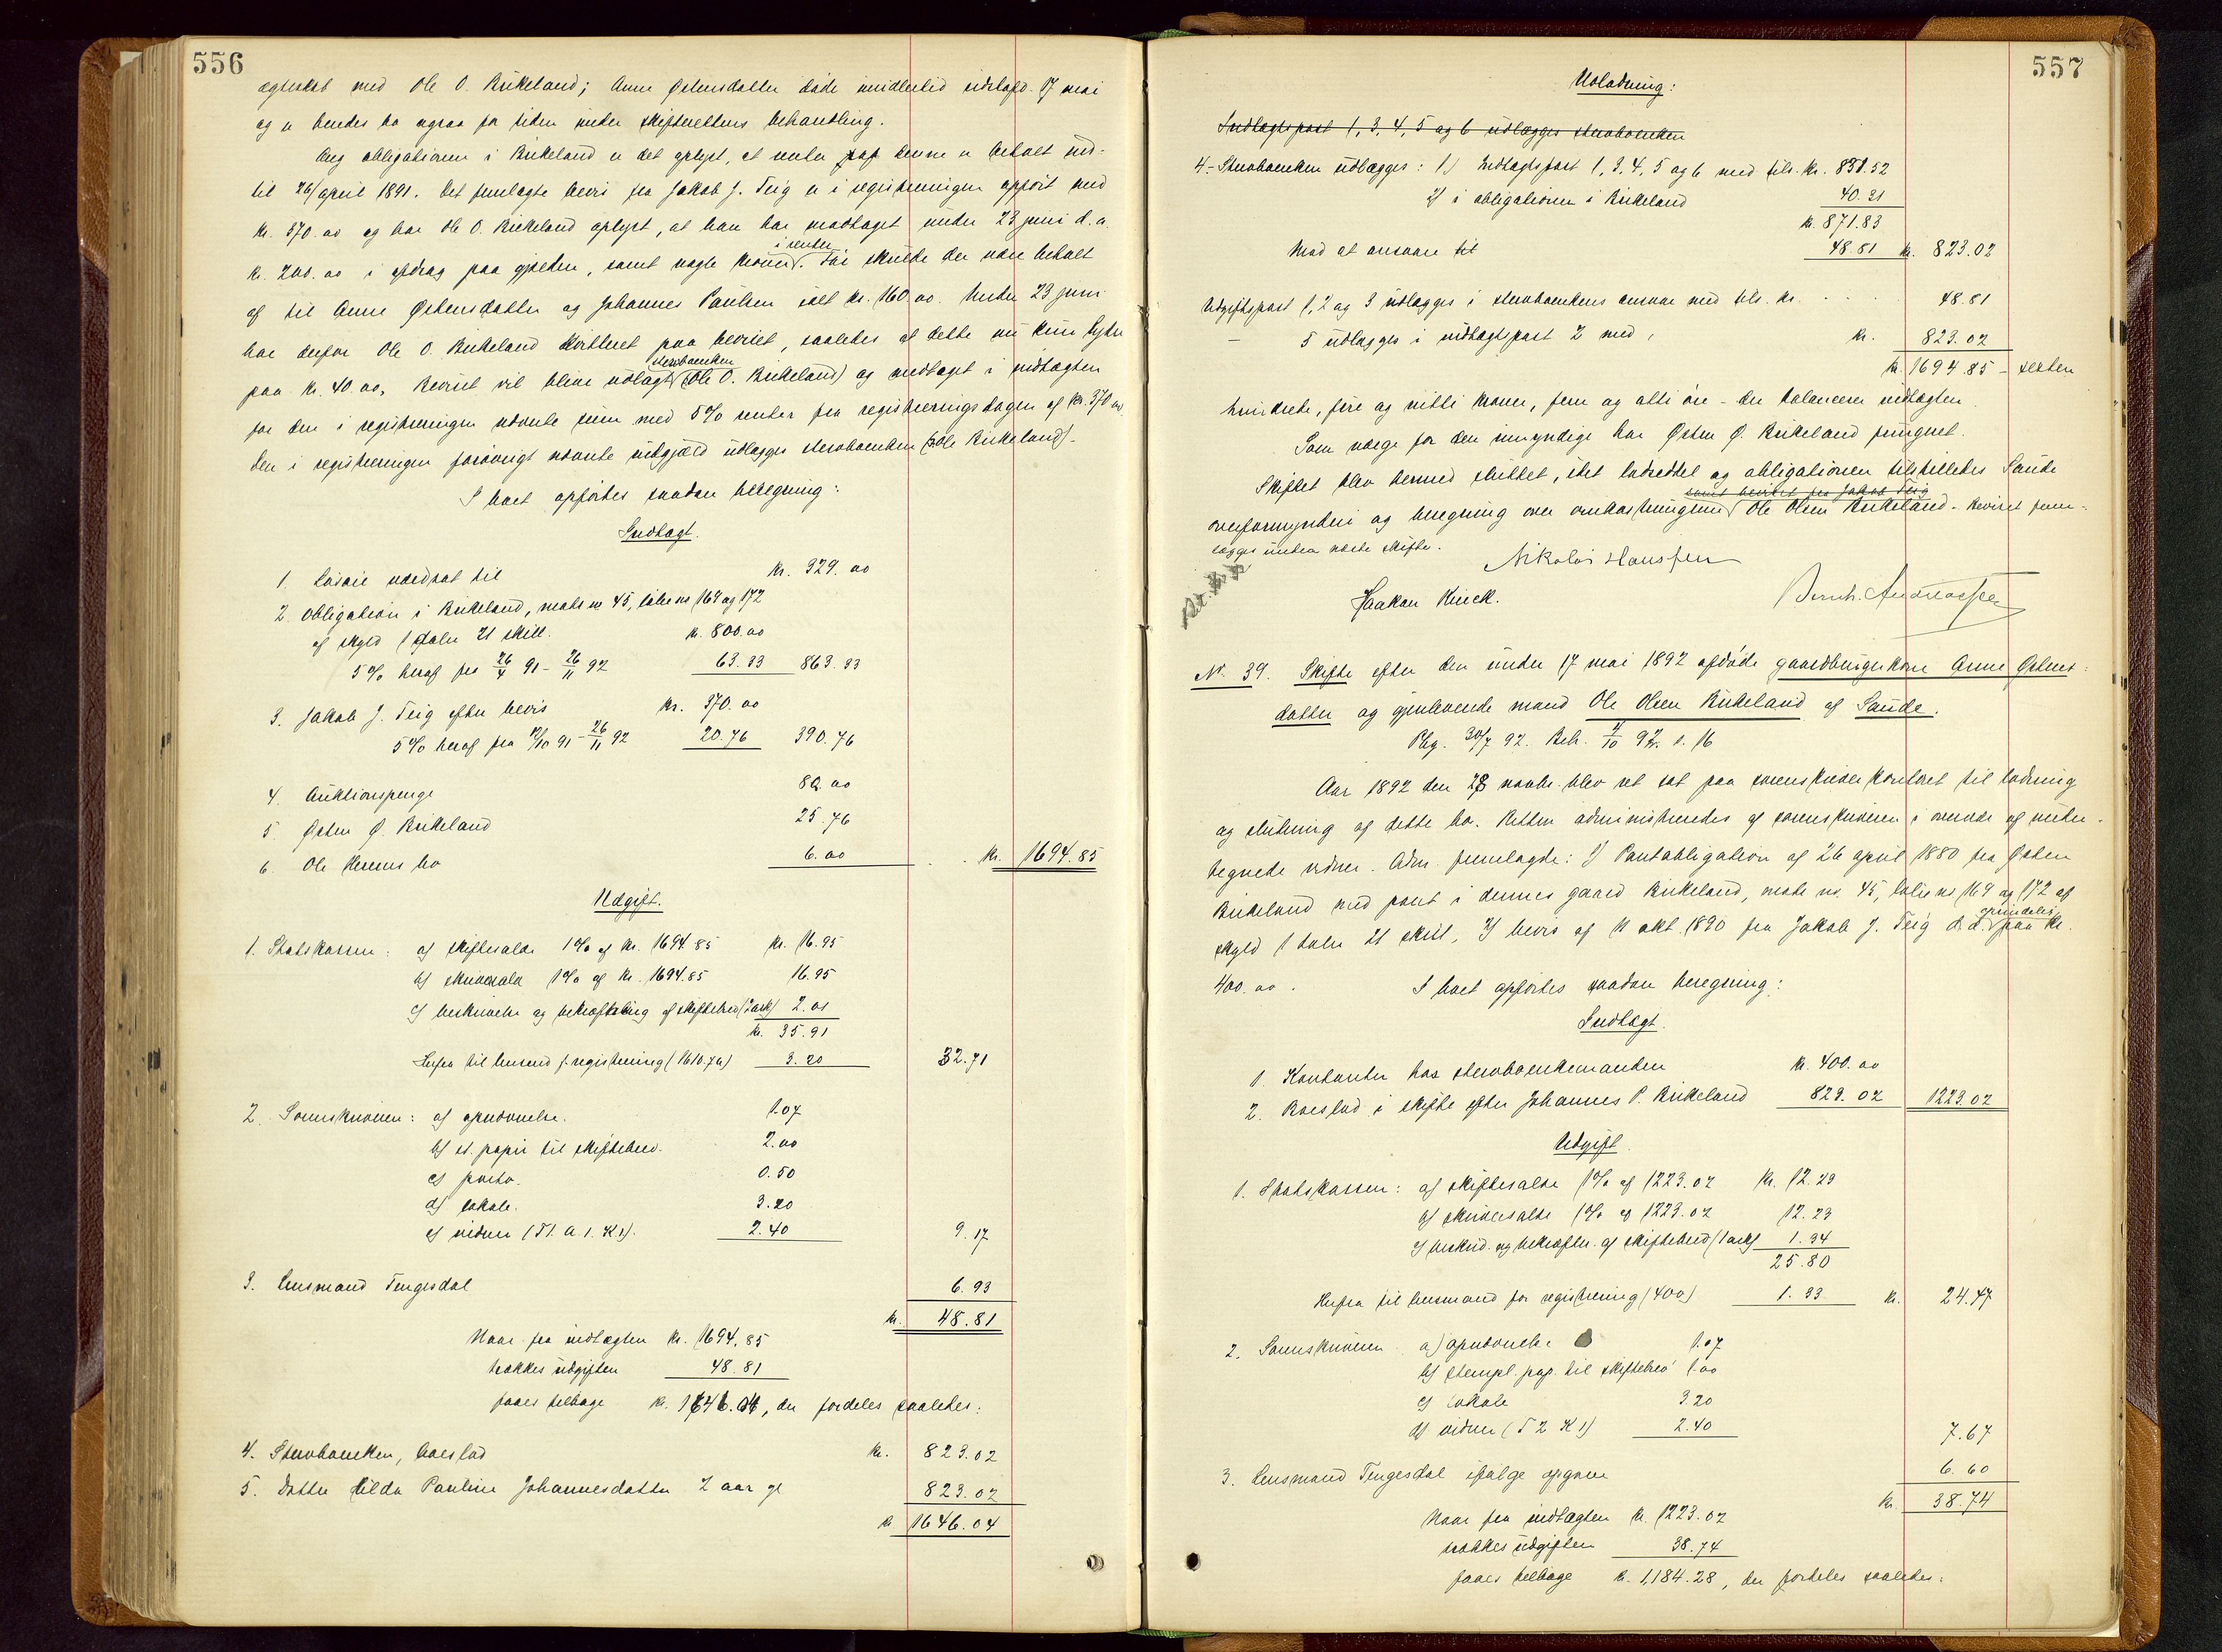 556
ægteskab med Ole O. Birkeland; Anne Østensdatter døde imidlertid sidstafv. 17 mai
og er hendes bo ogsaa for tiden under skifterettens behandling.
Ang obligationen i Birkeland er det oplyst, at renter paa denne er betalt ind-
til 26/april 1891. Det fremlagte bevis fra Jakob J. Teig er i registreringen opført med
kr. 370.00 og har Ole O. Birkeland oplyst, at han har modtaget under 23 juni d.a.
kr. 200.00 i afdrag paa gjælden, samt nogle kroner i renter. Før skulde der være betalt
af til Anne Østensdatter og Johannes Paulsen ialt kr. 160.00. Under 23 juni
har derfor Ole O. Birkeland kvitteret paa beviset, saaledes at dette nu kun lyder
paa kr. 40.00, Beviset vil blive udlagt stervboenken (Ole O. Birkeland) og medtaget i indtægten
for den i registreringen nævnte sum med 5% renter fra registreringsdagen af kr. 370.00.
Den i registreringen forøvrigt nævnte indgjæld udlægges stervboenken (Ole Birkeland).
I boet opførtes saadan beregning:
Indtægt.
1. Løsøre værdsat til kr. 329.00
2. Obligation i Birkeland, mats no 45, løbe no 169 og 172
af skyld 1 daler 21 skill. kr. 800.00
5% heraf fra 26/4 91 - 26/11 92 63.33 863.33
3. Jakob J. Teig efter bevis kr. 370.00
5% heraf fra 12/10 91 - 26/11 92 20.76 390.76
4. Auktionspenge 80.00
5. Østen Ø. Birkeland 25.76
6. Ole bo 6.00 kr. 1694.85
Udgift.
1. Statskassen: a) skiftesalær 1% af kr. 1694.85 kr. 16.95
b) skriversalær 1% af kr. 1694.85 16.95
c) beskrivelse og bekræftelse af skiftebrev (2 ark) 2.01
kr. 35.91
Herfra til lensmand f. registrering (1610.76) 3.20 32.71
2. Sorenskriveren: a) opnævnelse. 1.07
b) st. papir til skiftebrev. 2.00
c) porto. 0.50
d) lokale. 3.20
e) vidner (Tl. a. 1. K 1). 2.40 9.17
3. Lensmand Tengesdal 6.93
kr. 48.81
Naar fra indtægten kr. 1694.85
trækkes udgiften 48.81
faaes tilbage kr. 1646.04, der fordeles saaledes:
4. Stervboenken, boeslod kr. 823.02
5. Datter Hilda Pauline Johannesdatter 2 aar gl 823.02
kr 1646.04
557
Udlodning:
Indtægtspost 1, 3, 4, 5 og 6 udlægges stervboenken
4 – Stervboenken udlægges: 1) Indtægtspost 1, 3, 4, 5 og 6 med tils. kr. 831.52
2) i obligationen i Birkeland 40.31
kr. 871.83
Mod at ansvare til 48.81 kr. 823.02
Udgiftspost 1, 2 og 3 udlægges i stervboenkens ansvar med tils. kr. 48.81
– 5 udlægges i indtægtspost 2 med, kr. 823.02
kr. 1694.85 – sexten
hundrede, fire og nitti kroner, fem og otti øre – der balancerer indtægten.
Som værge for den umyndige har Østen Ø. Birkeland fungeret.
Skiftet blev hermed sluttet, idet lodseddel og obligationen tilstilledes Saude
samt beviset fra Jakob Teig
overformynderi og beregning over omkostningerne Ole Olsen Birkeland. Beviset frem-
lægges under næste skifte.
Nikolai Hanssen
Haakon Kinck. Bernh. Andreassen
No. 39. Skifte efter den under 17 mai 1892 afdøde gaardbrugerkone Anne Østens-
datter og gjenlevende mand Ole Olsen Birkeland af Saude.
Reg. 30/7 92. Beh. 4/10 92. s. 16
Aar 1892 den 28 novbr. blev ret sat paa sorenskriverkontoret til lodning
og slutning af dette bo. Retten administreredes af sorenskriveren i overvær af under-
tegnede vidner. Adm. fremlagde: 1) Pantobligation af 26 april 1880 fra Østen
Birkeland med pant i dennes gaard Birkeland, mats no. 45, løbe no 169 og 172 af
skyld 1 daler 21 skill, 2) bevis af 11 okt. 1890 fra Jakob J. Teig d.d. oprindelig paa kr.
400.00. I boet opførtes saadan beregning:
Indtægt.
1. Kontanter hos stervboenkemanden kr. 400.00
2. Boeslod i skifte efter Johannes P. Birkeland 823.02 1223.02
Udgift.
1. Statskassen: a) skiftesalær 1% af 1223.02 kr. 12.23
b) skriversalær 1% af 1223.02 12.23
c) beskriv. og bekræftn. af skiftebrev (1 ark) 1.34
25.80
Herfra til lensmand for registrering (400) 1.33 kr. 24.47
2. Sorenskriveren a) opnævnelse 1.07
b) stempl. pap. til skiftebrev 1.00
c) lokale 3.20
d) vidner (T 2 K 1) 2.40 7.67
3. Lensmand Tengesdal ifølge opgave 6.60
kr. 38.74
Naar fra indtægten kr. 1223.02
trækkes udgiften 38.74
faaes tilbage kr. 1,184.28, der fordeles saaledes: